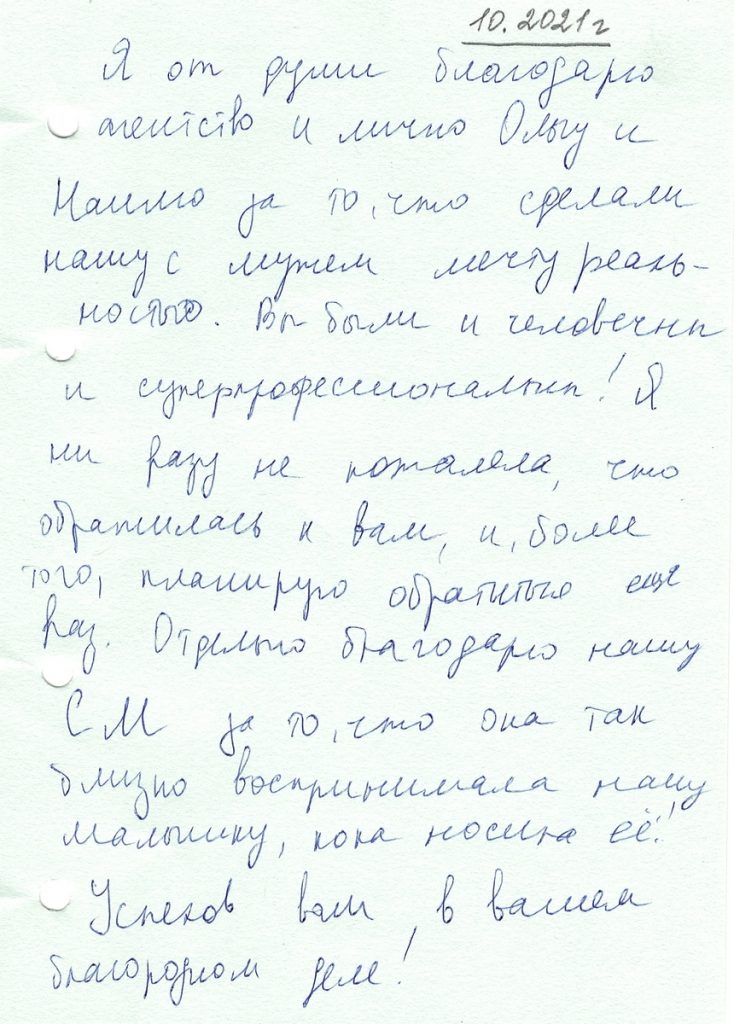 10.2021г
Я от души благодарю
агентство и лично Ольгу и
за то, что сделали
нашу с мужем мечту реаль-
ностью. Вы были и человечны
и суперпрофессиональны! Я
ни разу не пожалела, что
обратилась к вам, и, более
того, планирую обратиться ещё
раз. Отдельно благодарю нашу
СМ за то, что она так
близко воспринимала нашу
малышку, пока носила её!
Успехов вам в вашем
благородном деле!